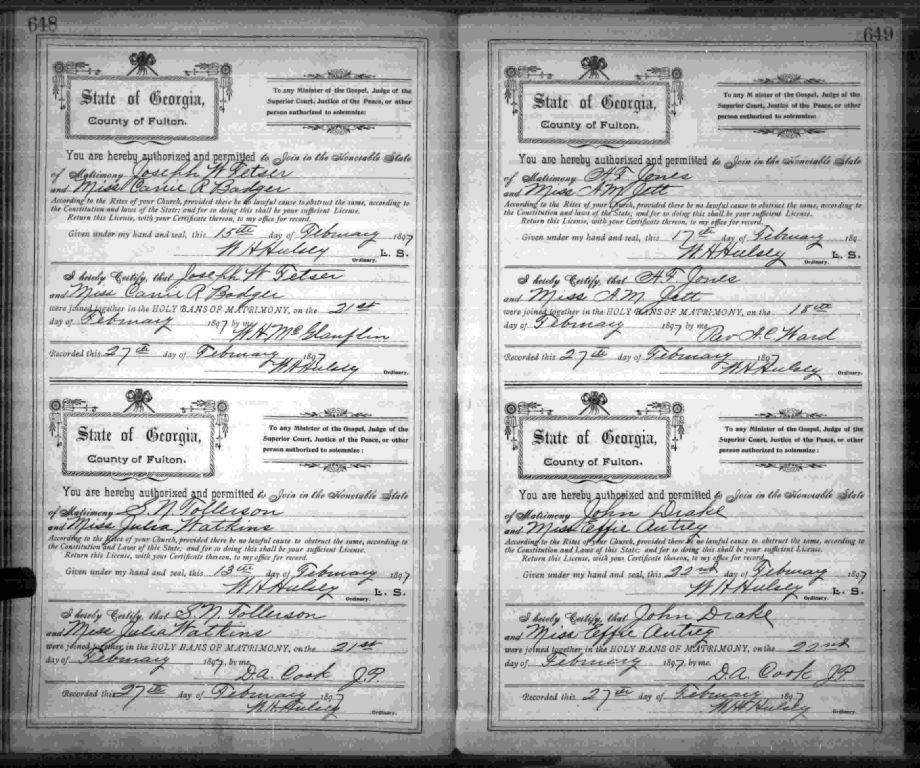 648
State of Georgia,
County of Fulton.
To any Minister of the Gospel, Judge of the
Superior Court, Justice of the Peace, or other
person authorized to solemnize:
You are hereby authorized and permitted to Join in the Honorable State
of Matrimony Joseph W Fetser
and Miss Carrie R Badger
According to the Rites of your Church, provided there be no lawful cause to obstruct the same, according to
the Constitution and laws of the State; and for so doing this shall be your sufficient License.
Return this License, with your Certificate thereon, to my office for record.
Given under my hand and seal, this 15th day of February 1897
W H Hulsey L. S.
Ordinary.
I hereby Certify, that Joseph W Fetser
and Miss Carrie R Badger
were joined together in the HOLY BANS OF MATRIMONY, on the 21st
day of February 1897 by me
W. H. McGlauflin
Recorded this 27th day of February 1897
W H Hulsey
Ordinary.
State of Georgia,
County of Fulton.
To any Minister of the Gospel, Judge of the
Superior Court, Justice of the Peace, or other
person authorized to solemnize:
You are hereby authorized and permitted to Join in the Honorable State
of Matrimony S. N. Tollerson
and Miss Julia Watkins
According to the Rites of your Church, provided there be no lawful cause to obstruct the same, according to
the Constitution and Laws of this State; and for so doing this shall be your sufficient License.
Return this License, with your Certificate thereon, to my office for record.
Given under my hand and seal, this 13th day of February 1897
W H Hulsey L. S.
Ordinary.
I hereby Certify, that S. N. Tollerson
and Miss Julia Watkins
were joined together in the HOLY BANS OF MATRIMONY, on the 21st
day of February 1897, by me.
D.A. Cook J.P.
Recorded this 27th day of February 1897
W. H. Hulsey
Ordinary.
649
State of Georgia,
County of Fulton.
To any Minister of the Gospel, Judge of the
Superior Court, Justice of the Peace, or other
person authorized to solemnize:
You are hereby authorized and permitted to Join in the Honorable State
of Matrimony H. F. Jones
and Miss A.M. Jett
According to the Rites of your Church, provided there be no lawful cause to obstruct the same, according to
the Constitution and laws of the State; and for so doing this shall be your sufficient License.
Return this License, with your Certificate thereon, to my office for record.
Given under my hand and seal, this 17th day of February 189
W. H. Hulsey L. S.
Ordinary.
I hereby Certify, that H. F. Jones
and Miss A.M. Jett
were joined together in the HOLY BANS OF MATRIMONY, on the 18th
day of February 1897 by me
Rev A.C. Ward
Recorded this 27th day of February 1897
W H Hulsey
Ordinary.
State of Georgia,
County of Fulton.
To any Minister of the Gospel, Judge of the
Superior Court, Justice of the Peace, or other
person authorized to solemnize:
You are hereby authorized and permitted to Join in the Honorable State
of Matrimony John Drake
and Miss Effie Autrey
According to the Rites of your Church, provided there be no lawful cause to obstruct the same, according to
the Constitution and Laws of this State; and for so doing this shall be your sufficient License.
Return this License, with your Certificate thereon, to my office for record.
Given under my hand and seal, this 22nd day of February 1897
W H Hulsey L. S.
Ordinary.
I hereby Certify, that John Drake
and Miss Effie Autrey
were joined together in the HOLY BANS OF MATRIMONY, on the 22nd
day of February 1897. by me.
D.A. Cook J.P.
Recorded this 27th day of February 1897
W. H. Hulsey
Ordinary.